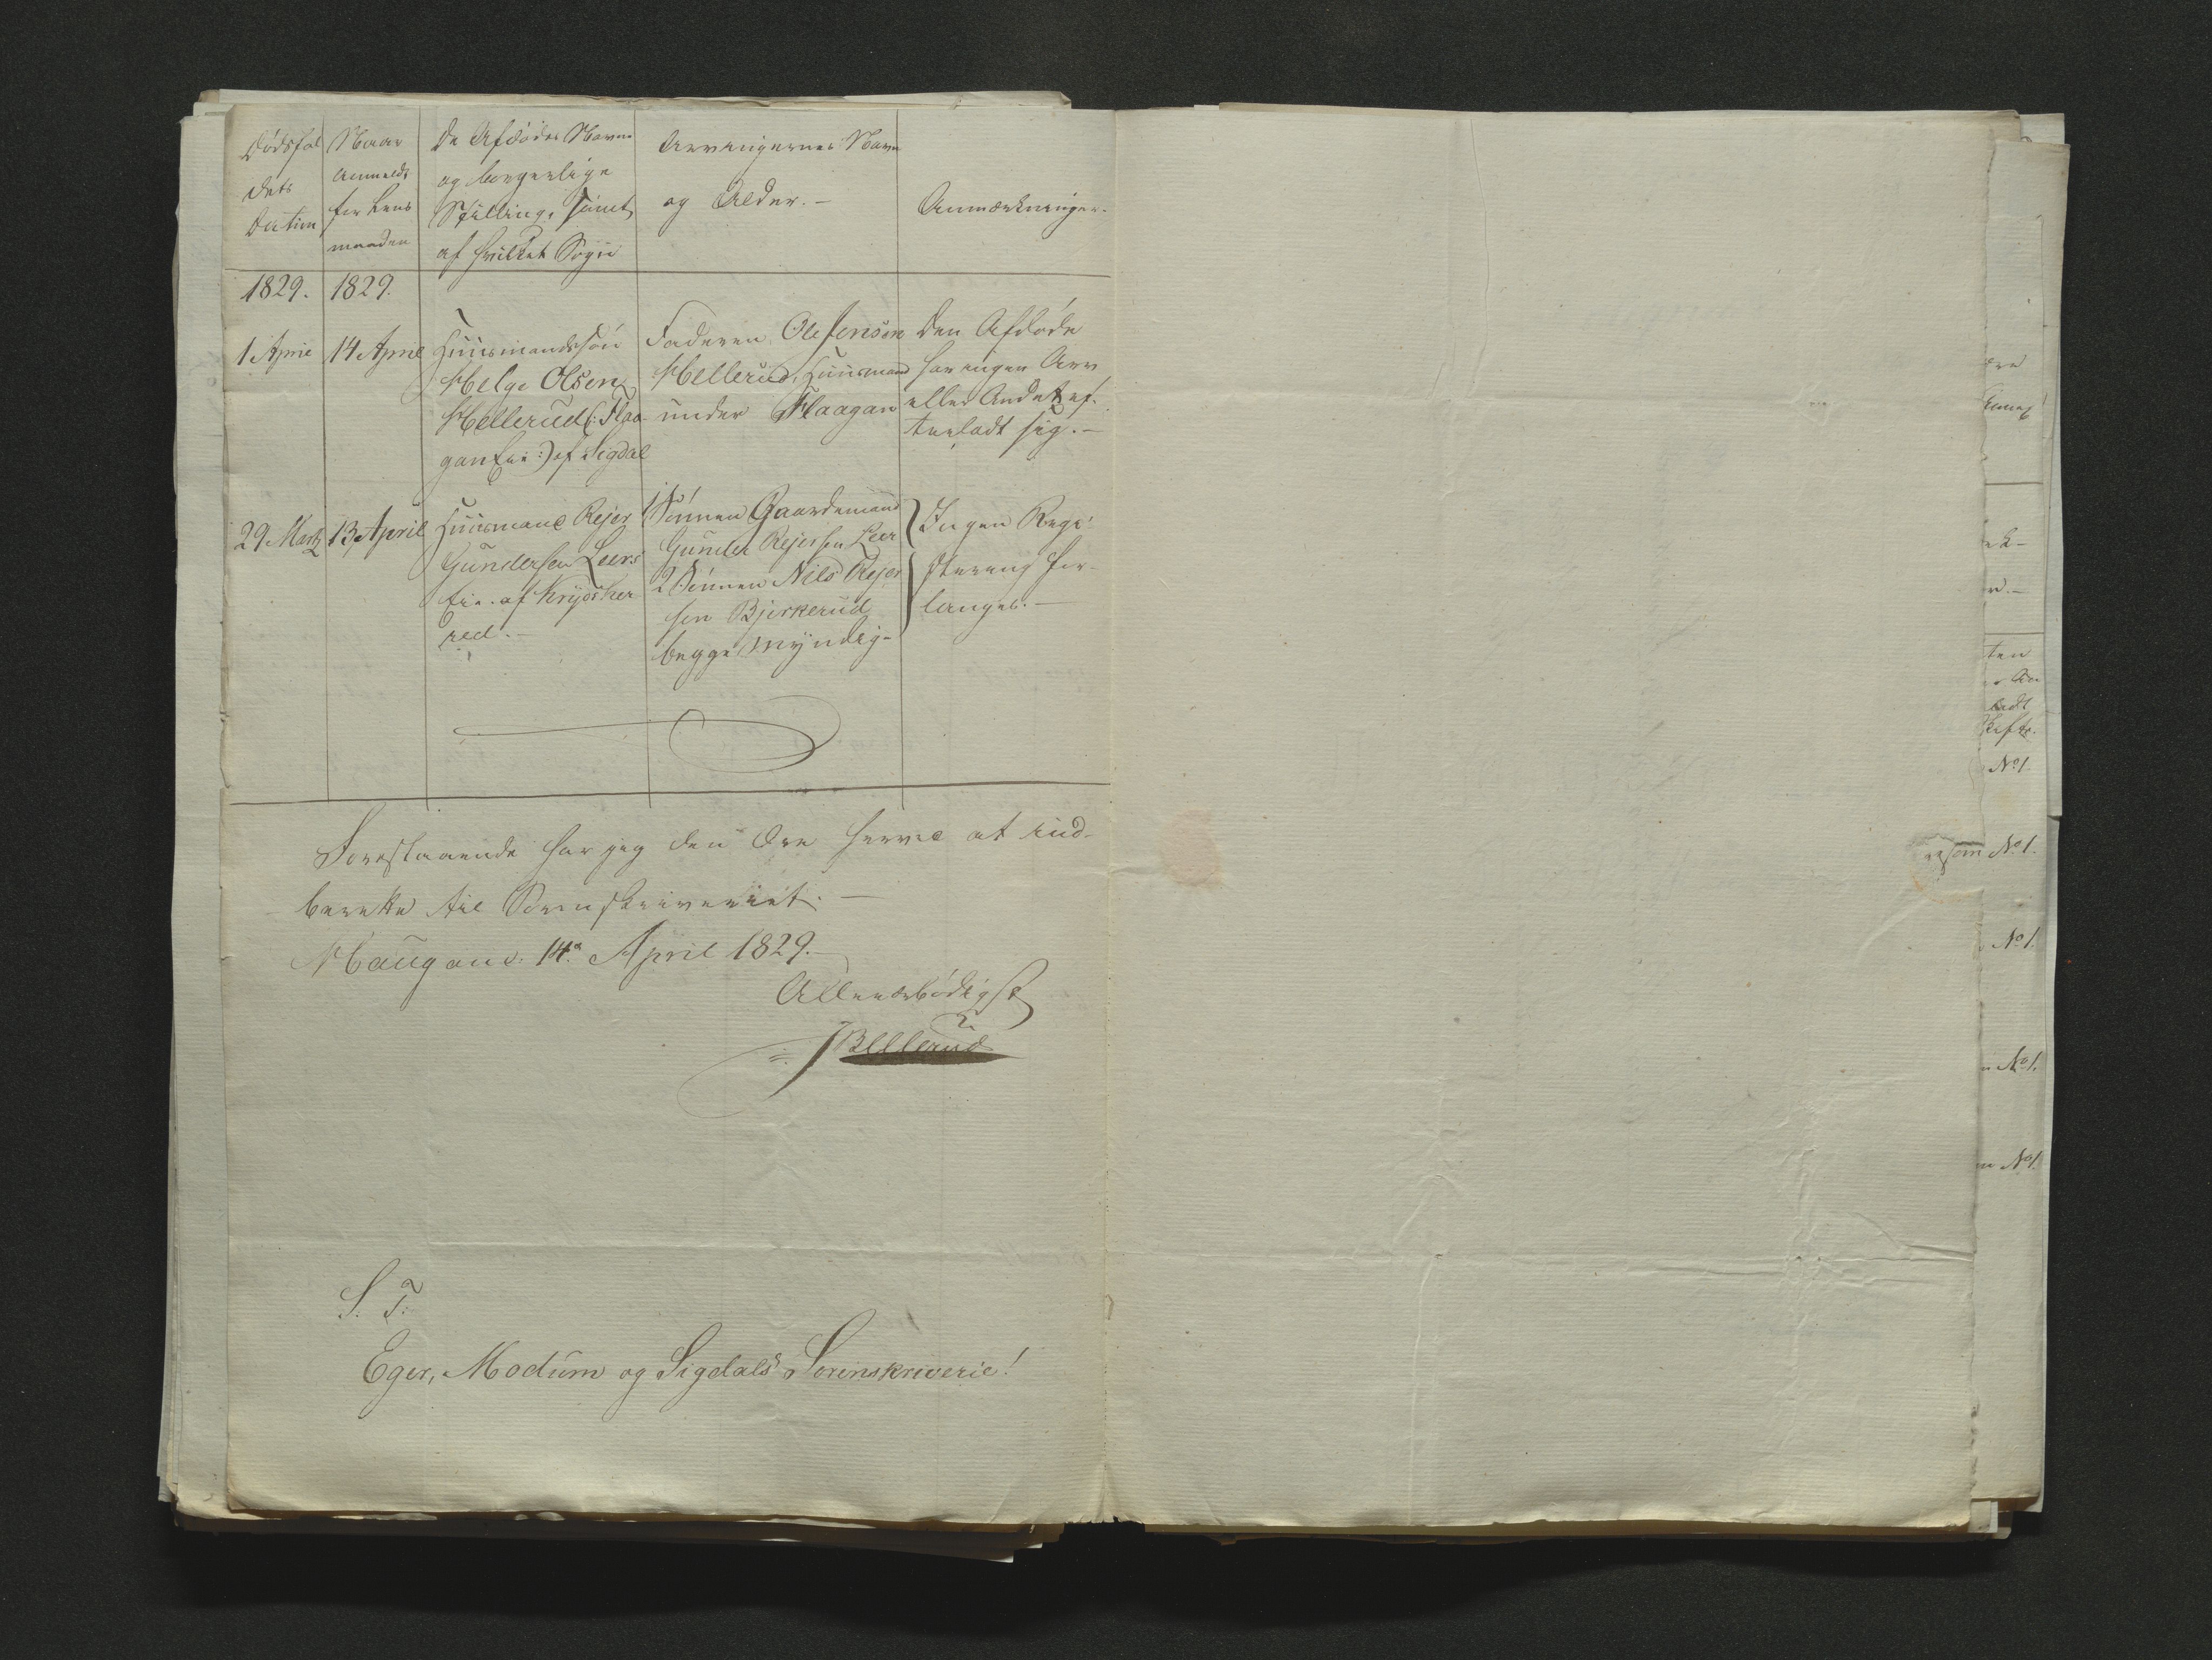 Dødsfal
dets
Datum
Naar
anmeldt
for Lens
manden
De Afdødes Navne
og borgerlige
Stilling, samt
af hvilket Sogn
Arvingernes Navn
og Alder. -
Anmærkninger.
1829.
1829.
1 April
14 April
Huusmandssøn
Helge Olsen
Hellerud (: Flaa-
gan Eie :) af Sigdal
Faderen Ole Jensen
Hellerud, Huusmand
under Flaagan
Den Afdøde
har ingen Arv
eller Andet ef-
terladt sig. -
29 Martz
13 April
Huusmand Rejer
Gundersen Leers
Eie. af Krydsher
red. -
1 Sønnen Gaardmand
Gunder Rejersen Leer
2 Sønnen Nils Rejer
sen Bjerkerud
begge myndig-
Ingen Regi-
strering for-
langes. -
Forestaaende har jeg den Ære herved at ind-
berette til Sorenskriveriet. -
Haugan d. 14d April 1829. -
Allerærbødigst
J Bellerud
S. T:
Eger, Modum og Sigdals Sorenskriverie!
ten
ladt
No 1
No 1.
No 1.
No 1.
No 1.